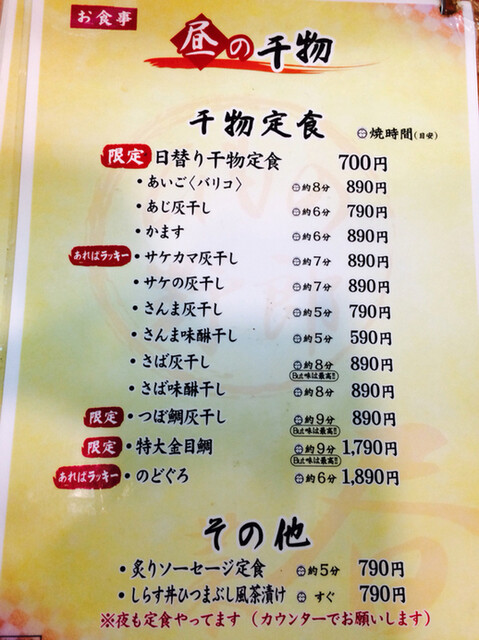 お食事
昼の干物
干物定食 焼時間(目安)
限定 日替り干物定食 700円
・あいご〈バリコ〉 約8分 890円
・あじ灰干し 約6分 790円
・かます 約6分 890円
あればラッキー ・サケカマ灰干し 約7分 890円
・サケの灰干し 約7分 890円
・さんま灰干し 約5分 790円
・さんま味醂干し 約5分 590円
・さば灰干し 約8分 890円
But味は最高!!
・さば味醂干し 約8分 890円
限定 ・つぼ鯛灰干し 約9分 890円
But味は最高!!
限定 ・特大金目鯛 約9分 1,790円
But味は最高!!
あればラッキー ・のどぐろ 約6分 1,890円
その他
・炙りソーセージ定食 約5分 790円
・しらす丼ひつまぶし風茶漬け すぐ 790円
※夜も定食やってます（カウンターでお願いします）